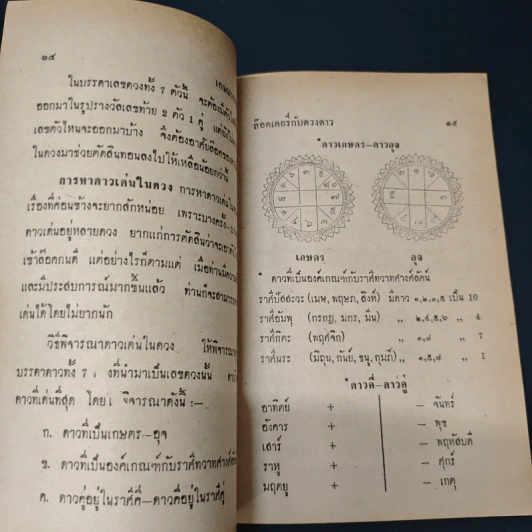 ๑๔
ในบรรดาเลขดวงทั้ง 7 ตัวนี้ จะต้องมีตัวใด
ออกมาในรูปรางวัลเลขท้าย 2 ตัว 1 คู่
เลขตัวไหนจะออกมาบ้าง จึงต้องอาศัย
ในดวงมาช่วยตัดสินทอนลงไปให้เหลือน้อยกว่านี้
การหาดาวเด่นในดวง การหาดาวเด่น
เรื่องที่ค่อนข้างจะยากสักหน่อย เพราะบางครั้ง
ดาวเด่นอยู่หลายดวง ยากแก่การตัดสินว่าจะเอา
เข้าล๊อคกนดี แต่อย่างไรก็ตามแต่ เมื่อท่าน
และมีประสบการณ์มากขึ้นแล้ว ท่านก็จะสามารถ
เด่นได้โดยไม่ยากนัก
วิธีพิจารณาดาวเด่นในดวง ให้พิจารณา
บรรดาดาวทั้ง 7 ที่นำมาเป็นเลขดวงนั้น
ดาวที่เด่นที่สุด โดย พิจารณาดังนี้ :—
ก. ดาวที่เป็นเกษตร—อุจ
ข. ดาวที่เป็นองค์เกณฑ์กับราศีทวาทศ
ค. ดาวคู่อยู่ในราศีคี่—ดาวคี่อยู่ในราศีคู่
ล๊อตเตอรี่กับดวงดาว ๑๕
ดาวเกษตร—ดาวอุจ
เกษตร อุจ
ดาวที่เป็นองค์เกณฑ์กับราศีทวาทศางค์ลัคน์
ราศีปัสสะวะ (เมษ, พฤษภ, สิงห์) มีดาว ๑,๒,๓,๕ เป็น 10
ราศีอัมพุ (กรกฎ, มกร, มีน) ,, ๒,๔,๕,๖ ,, 4
ราศีกิตะ (พฤศจิก) ,, ๑,๘ ,, 7
ราศีนระ (มิถุน, กันย์, ธนู, กุมภ์) ,, ๑,๕,๘ ,, 1
ดาวคี่—ดาวคู่
อาทิตย์ + — จันทร์
อังคาร + — พุธ
เสาร์ + — พฤหัสบดี
ราหู + — ศุกร์
มฤตยู + — เกตุ